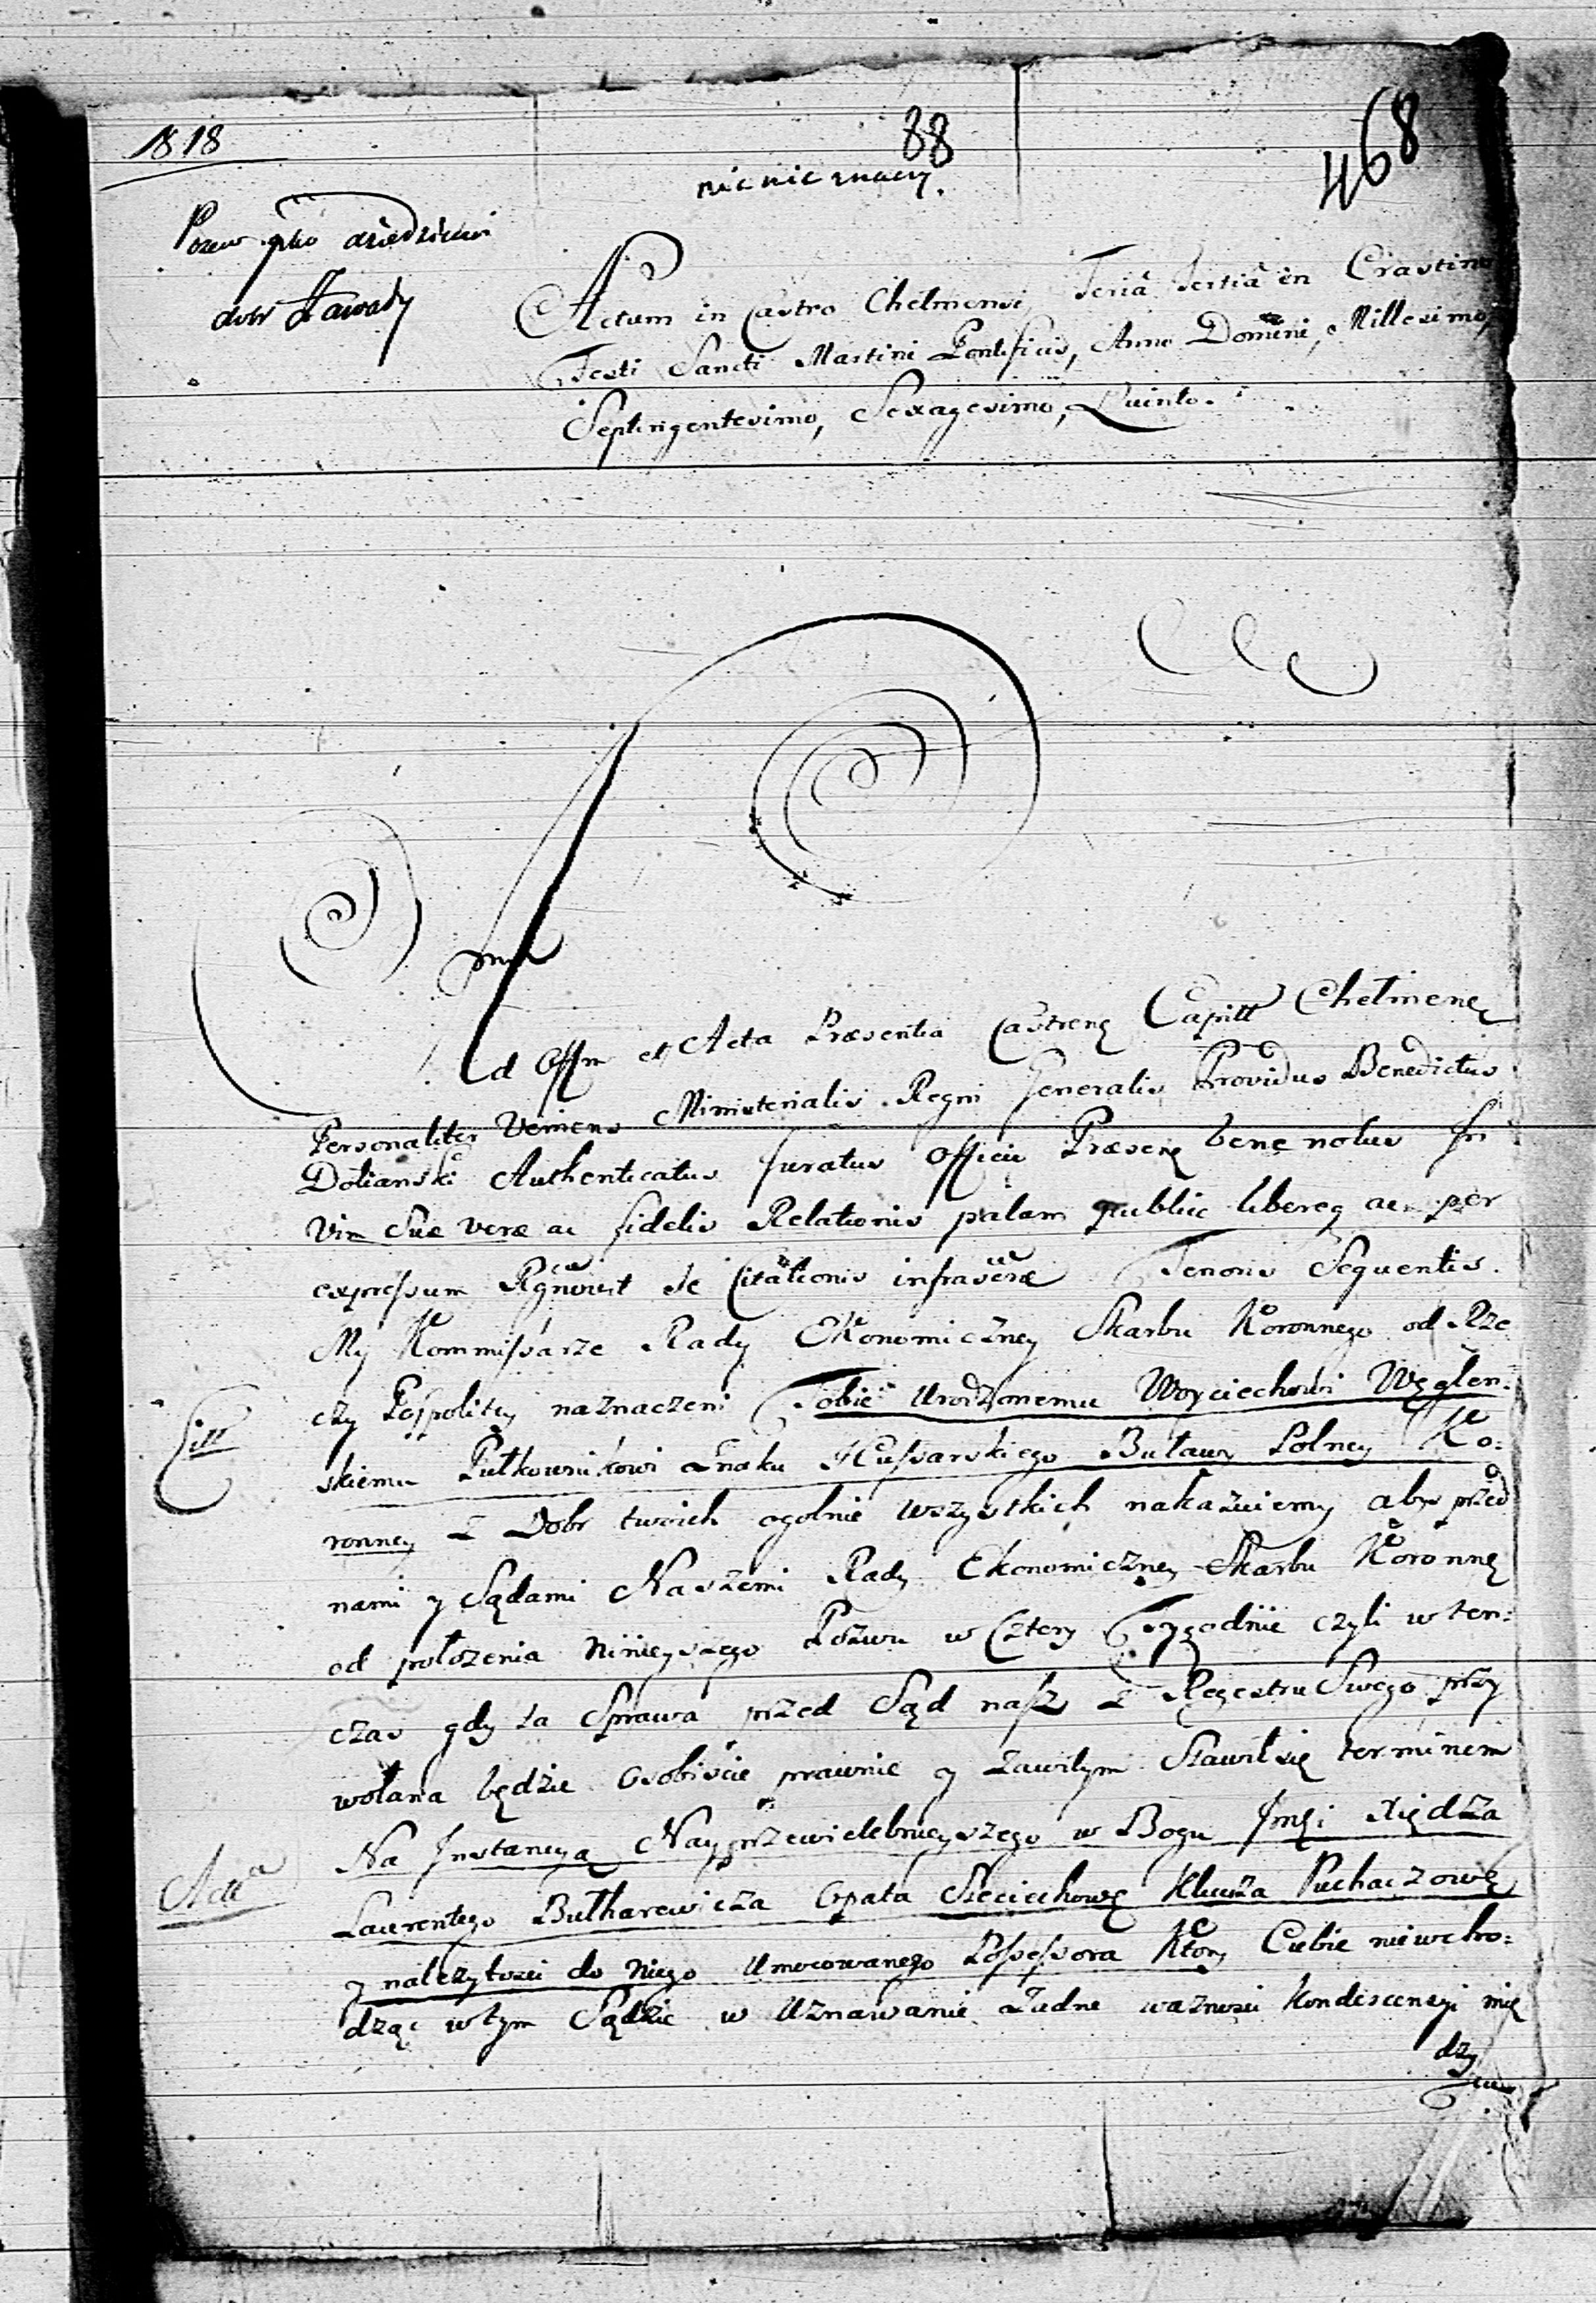 1818
88
nic nie znaczy.
468
Pozew pko dziedzicowi
dobr Zawady
Actum in Castro Chelmensi, Feria Tertia in Crastino
Festi Sancti Martini Pontificis, Anno Domini, Millesimo,
Septingentesimo, Sexagesimo, Quinto.
Ad Offm et Acta Præsentia Castreng Capitt Chelmeng
Personaliter Veniens Ministerialis Regni Generalis Providus Benedictus
Dolianski Authenticatus Juratus Officii Præseng bene notus In
Vim Suæ veræ ac fidelis Relationis palam public libereq ac per
expressum Rgnovit Se Citationis infrascræ Tenoris Sequentis.
My Kommissarze Rady Ekonomiczney Skarbu Koronnego od Rze
czy Pospolitey naznaczeni Tobie Urodzonemu Woyciechowi Węglen:
Citt
skiemu Pułkownikowi Znaku Hussarskiego Buławy Polney Ko:
ronney z Dobr twoich ogolnie wszystkich nakazuiemy abys przed
nami y Sądami Naszemi Rady Ekonomiczney Skarbu Koronng
od położenia Ninieyszego Pozwu w Cztery Tygodnie czyli w ten:
czas gdy ta Sprawa przed Sąd nasz z Regestru Swego przy
wołana będzie Osobiście prawnie y zawitym Stawił się terminem
Na Instancyą Nayprzewielebnieyszego w Bogu Jmci Xiędza
Actta
Laurentego Bułharewicza Opata Sieciechowg Klucza Puchaczowg
y należytosci do Niego Umocowanego Possessora Ktory Ciebie niewcho:
dząc w tym Sądzie w Uznawanie Żadne ważnosci Kondescensyi mię
dzy